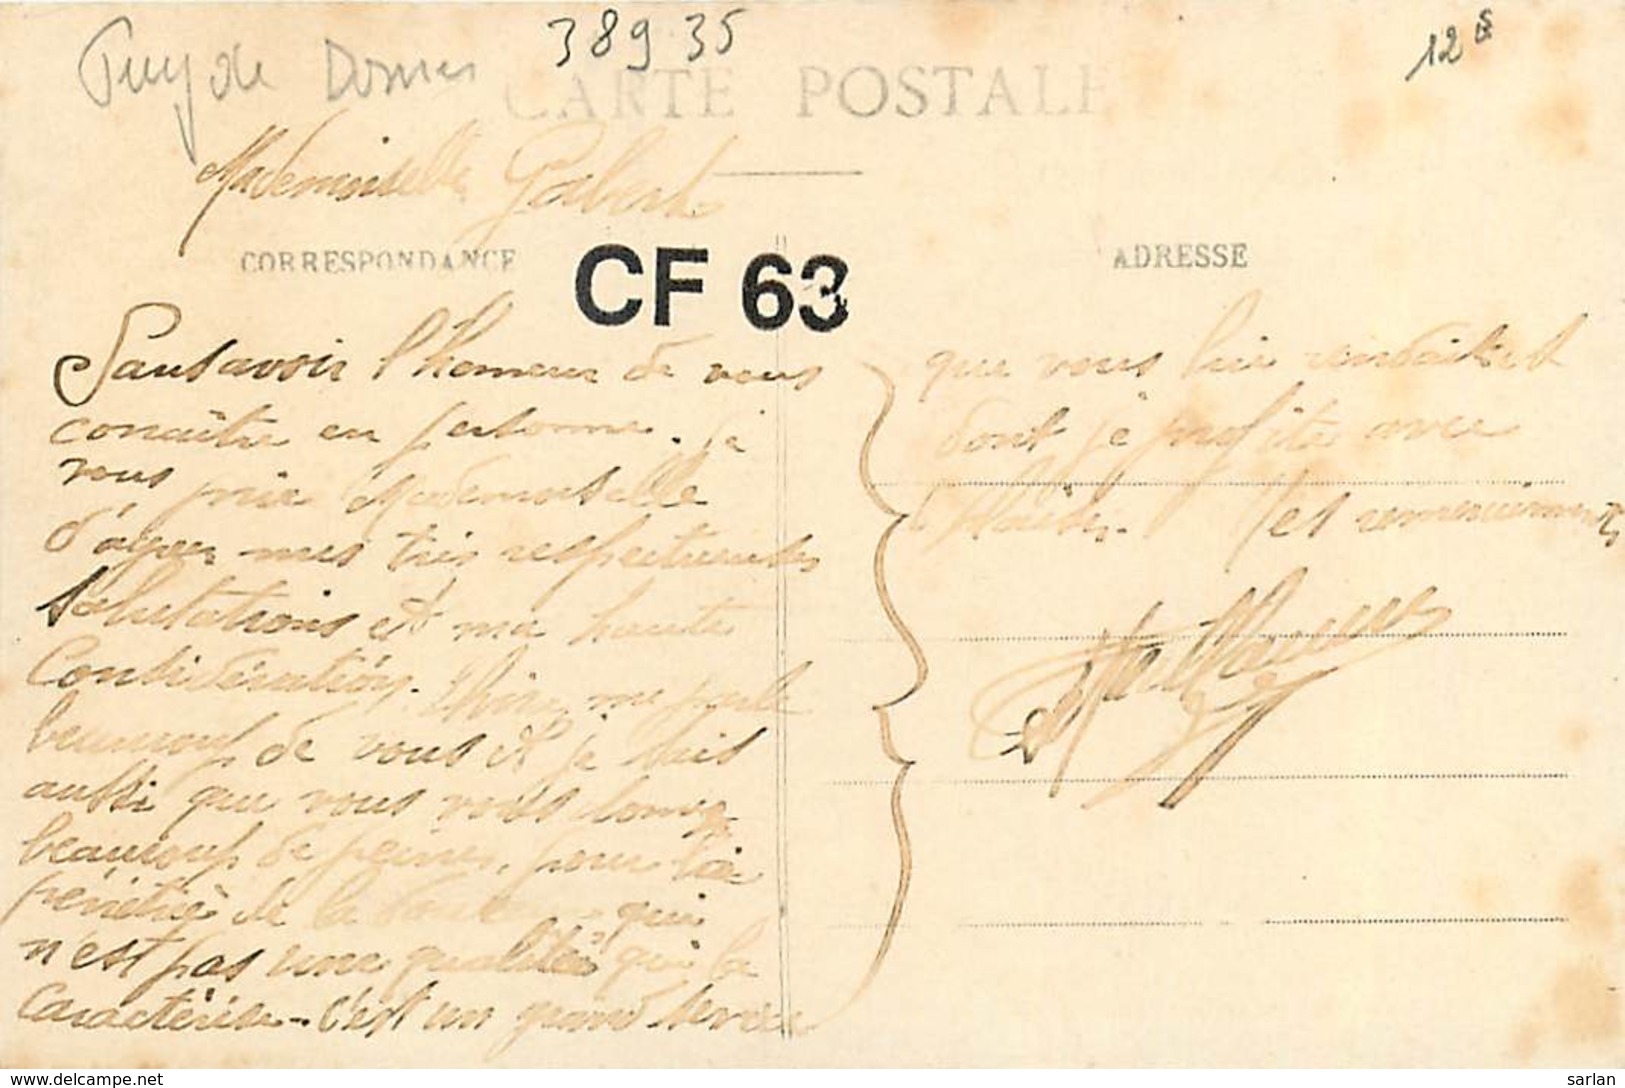 Puy de Dome
389 35
12 €
CARTE POSTALE
Mademoiselle Galbert
CORRESPONDANCE
CF 63
ADRESSE
Sans avoir l'honneur de vous
connaître en personne. je
vous prie Mademoiselle
d'agréer mes très respectueuses
salutations et ma haute
Considération. me parle
beaucoup de vous et je sais
aussi que vous vous donnez
beaucoup de peines, pour la
pénétrée de la qui
n'est pas une qualité qui la
caractérise. C'est un grand service
que vous lui rendait et
dont je profite avec
plaisir. et remerciements